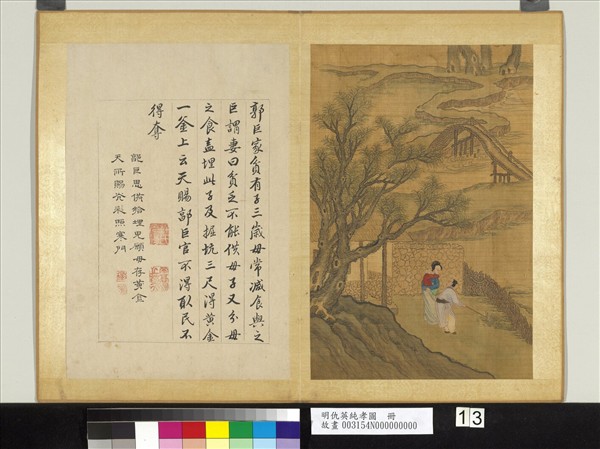 郭巨家貧有子三歲母常減食與之
巨謂妻曰貧乏不能供母子又分母
之食盍埋此子及掘坑三尺得黃金
一釜上云天賜郭巨官不得取民不
得奪
郭巨思供給埋兒願母存黃金
天所賜光彩照寒門
明仇英純孝圖 冊
故畫 003154N000000000
13